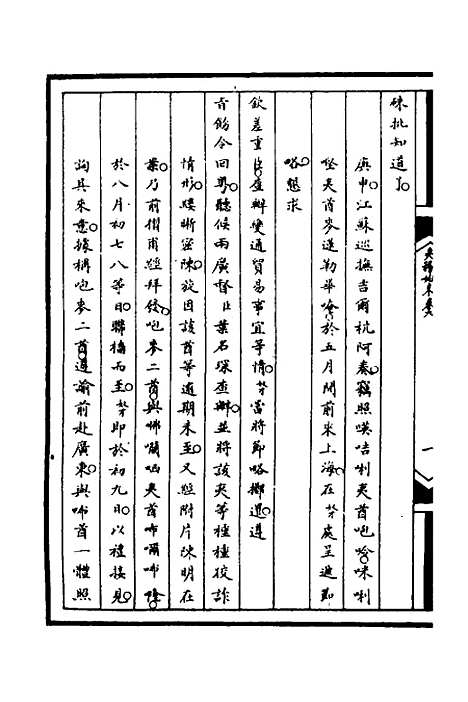 硃批知道了
庚申江蘇巡撫吉爾杭阿奏竊照𠸄咭唎夷酋咆唥咪唎
㗨夷酋麥蓮勒畢唥於五月間前來上海在奴才處呈遞節
略懇求
欽差重臣查辦變通貿易事宜等情奴才當將節略擲還遵
旨飭令回粵聽候兩廣督臣葉名琛查辦並將該夷等種種狡詐
情形縷晰密陳旋因該酋等逾期未至又經附片陳明在
案乃前摺甫經拜發咆麥二酋與㖠囒哂夷酋咘爾咘隆
於八月初七八等日聯檣而至奴才即於初九日以禮接見
詢其來意據稱咆麥二酋遵諭前赴廣東與咘酋一體照